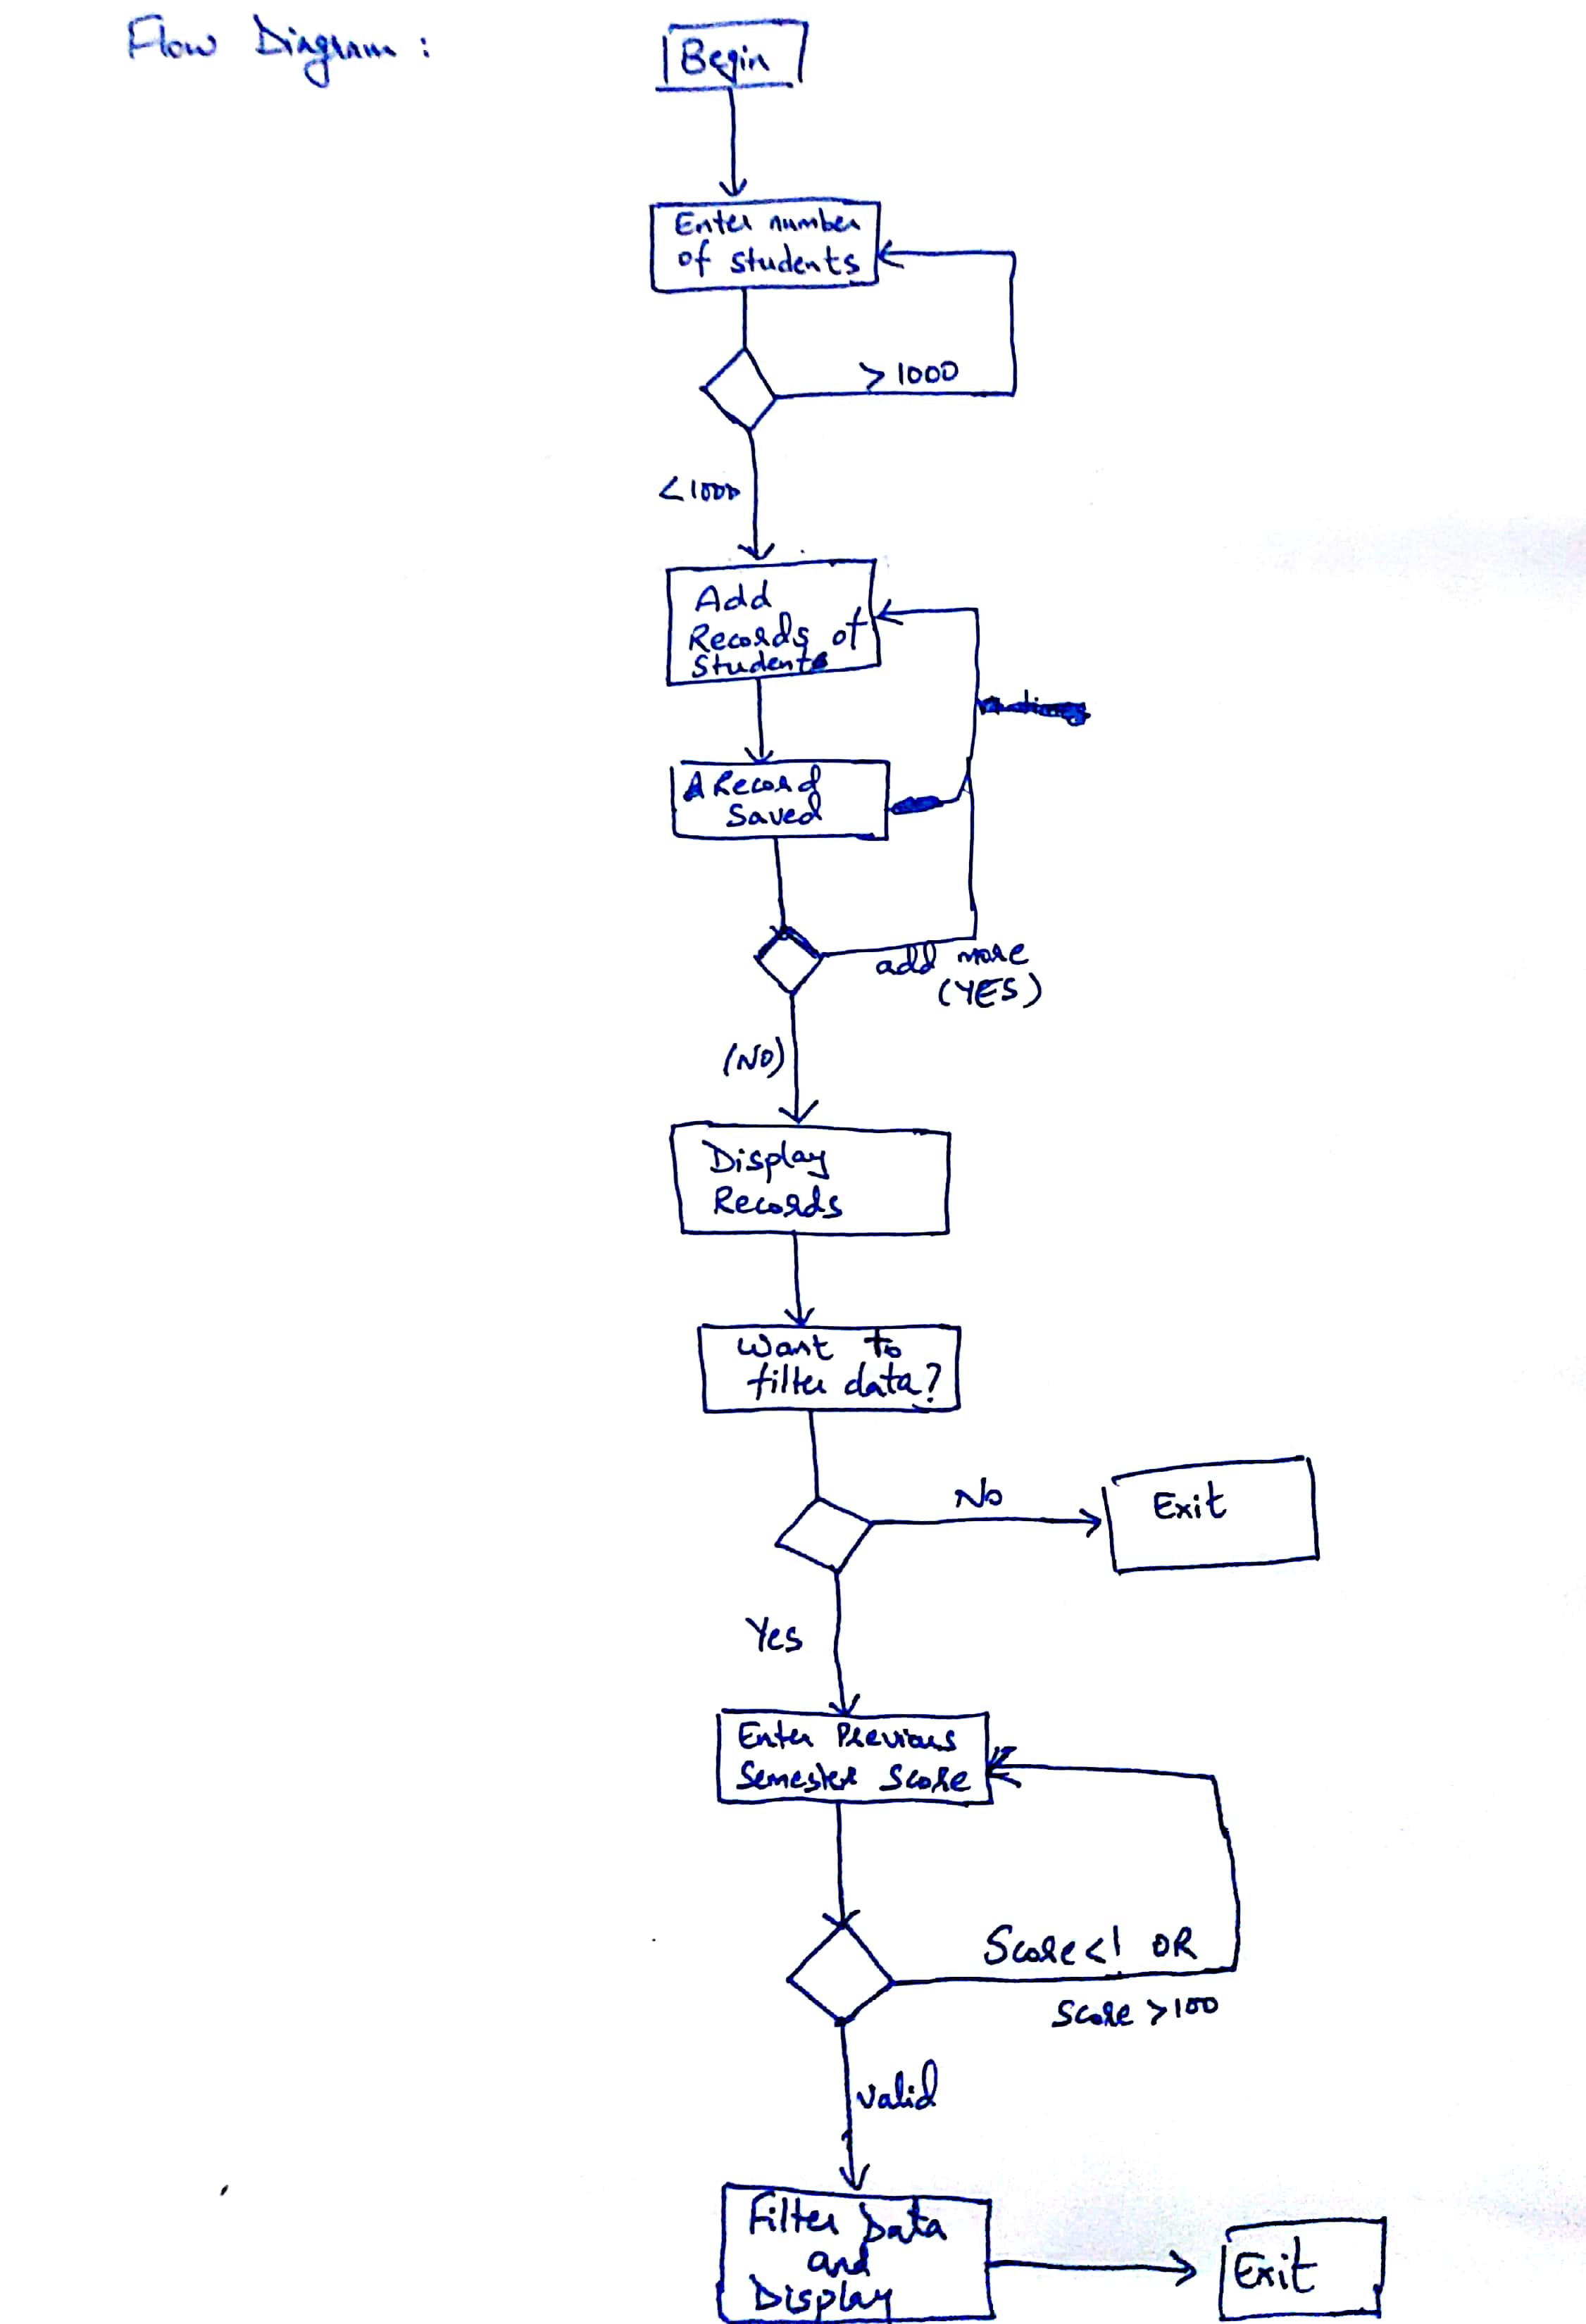 Flow Diagram :
Begin
Enter number
of students
> 1000
< 1000
Add
Records of
Students
A Record
Saved
add more
(YES)
(NO)
Display
Records
Want to
filter data?
No
Exit
Yes
Enter Previous
Semester Score
Score < 1 OR
Score > 100
valid
Filter Data
and
Display
Exit